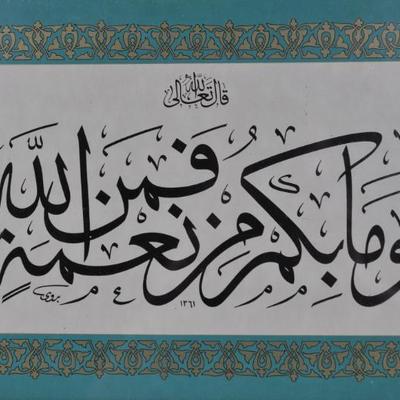 قال الله تعالى
وما بكم من نعمة فمن الله
١٣٦١